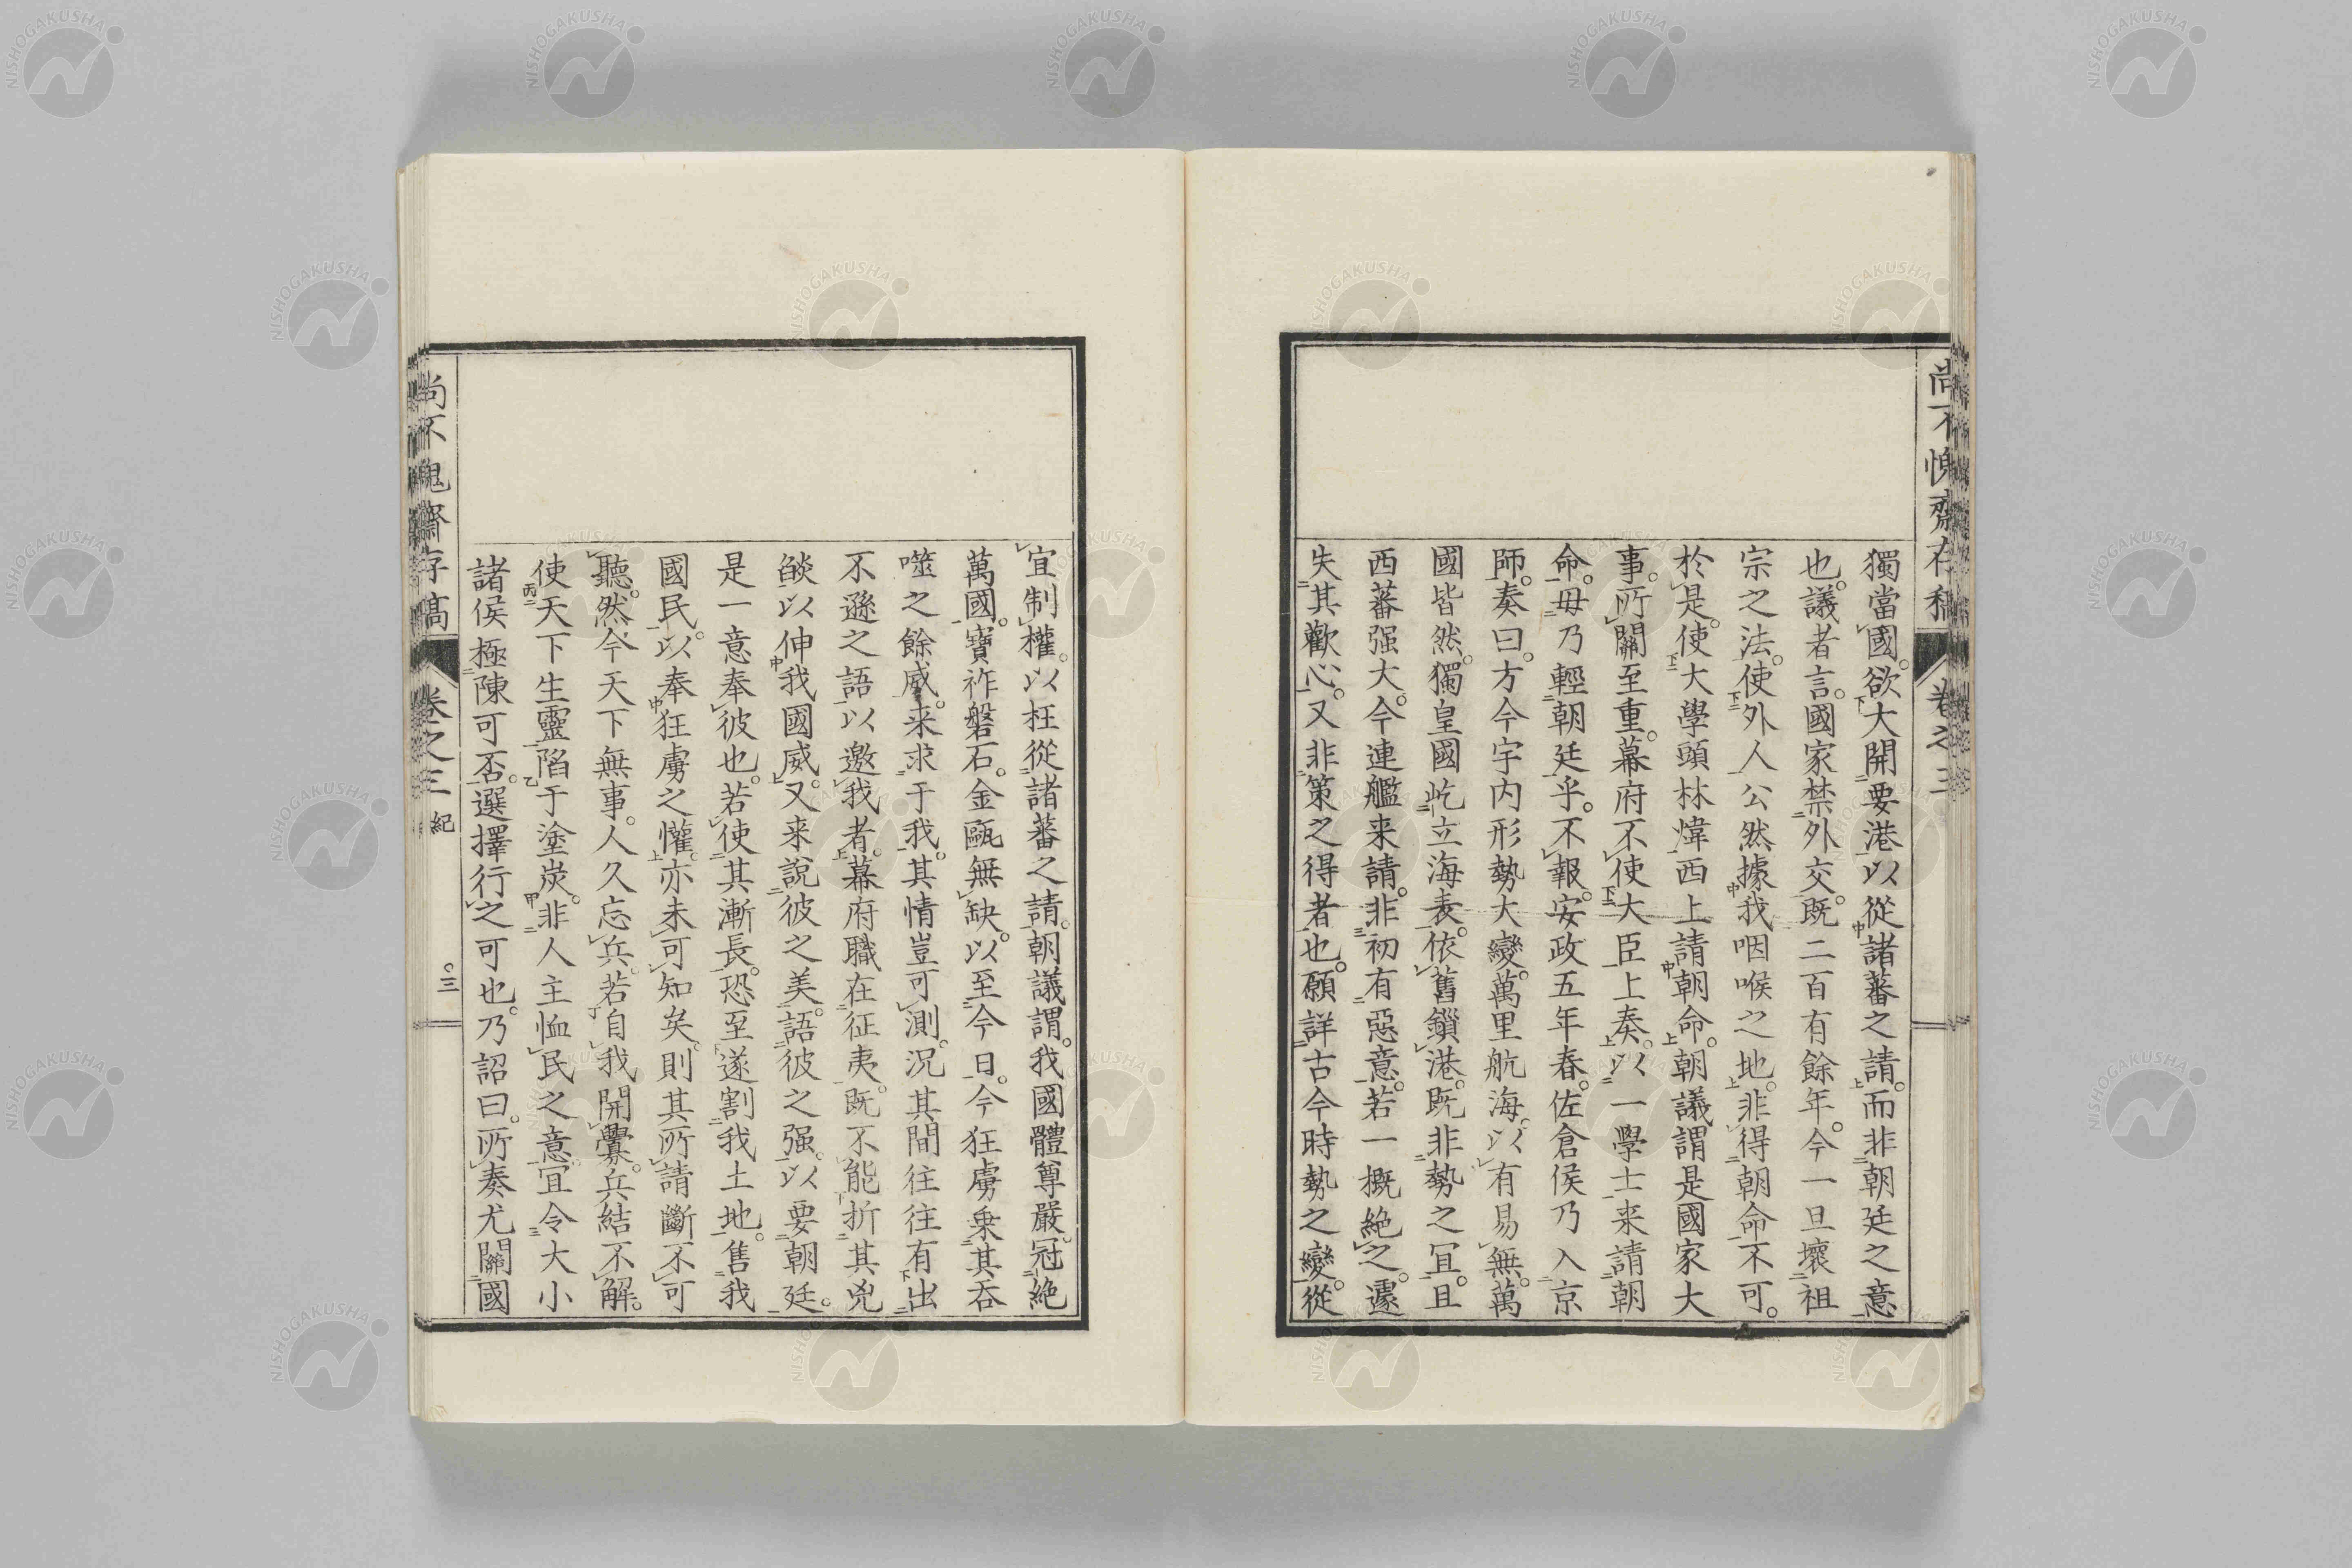 尚不愧齋存稿 卷之三
獨當國。欲大開要港以從諸蕃之請。而非朝廷之意
也。議者言。國家禁外交。既二百有餘年。今一旦壞祖
宗之法。使外人公然據我咽喉之地。非得朝命不可。
於是。使大學頭林煒西上請朝命。朝議謂是國家大
事。所關至重。幕府不使大臣上奏。以一學士来請朝
命。毋乃輕朝廷乎。不報。安政五年春。佐倉侯乃入京
師。奏曰。方今宇内形勢大變。萬里航海。以有易無。萬
國皆然。獨皇國屹立海表。依舊鎖港。既非勢之冝。且
西蕃强大。今連艦来請。非初有惡意。若一概絶之。遽
失其歡心。又非策之得者也。願詳古今時勢之變。從
宜制權。以枉從諸蕃之請。朝議謂。我國體尊嚴。冠絶
萬國。寶祚磐石。金甌無缺。以至今日。今狂虜乗其吞
噬之餘威。来求于我。其情豈可測。況其間往往有出
不遜之語以邀我者。幕府職在征夷。既不能折其兇
燄以伸我國威。又来說彼之美。語彼之强。以要朝廷。
是一意奉彼也。若使其漸長。恐至遂割我土地。售我
國民。以奉狂虜之懽。亦未可知矣。則其所請斷不可
聽。然今天下無事。人久忘兵。若自我開釁。兵結不解。
使天下生靈陷于塗炭。非人主恤民之意。冝令大小
諸侯極陳可否。選擇行之可也。乃詔曰。所奏尤關國
尚不愧齋存稿 卷之三 紀 三
NISHOGAKUSHA